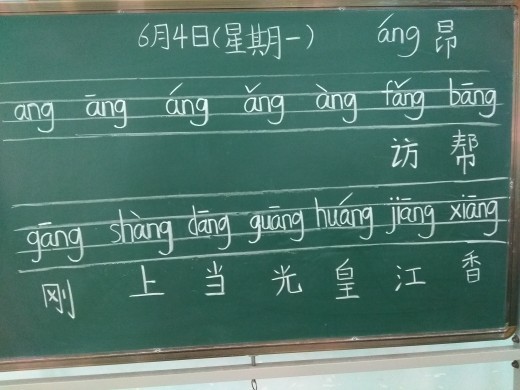 6月4日(星期一) áng 昂
ang āng áng ǎng àng fǎng bāng
访 帮
gāng shàng dāng guāng huáng jiāng xiāng
刚 上 当 光 皇 江 香